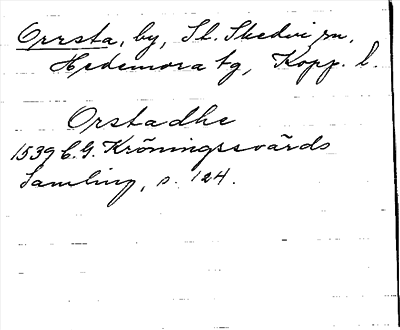 Orrsta, by, St. Skedvi sn.
Hedemora tg, Kopp. l.
Orstadhe
1539 C. G. Kröningssvärds
Samling, s. 124.